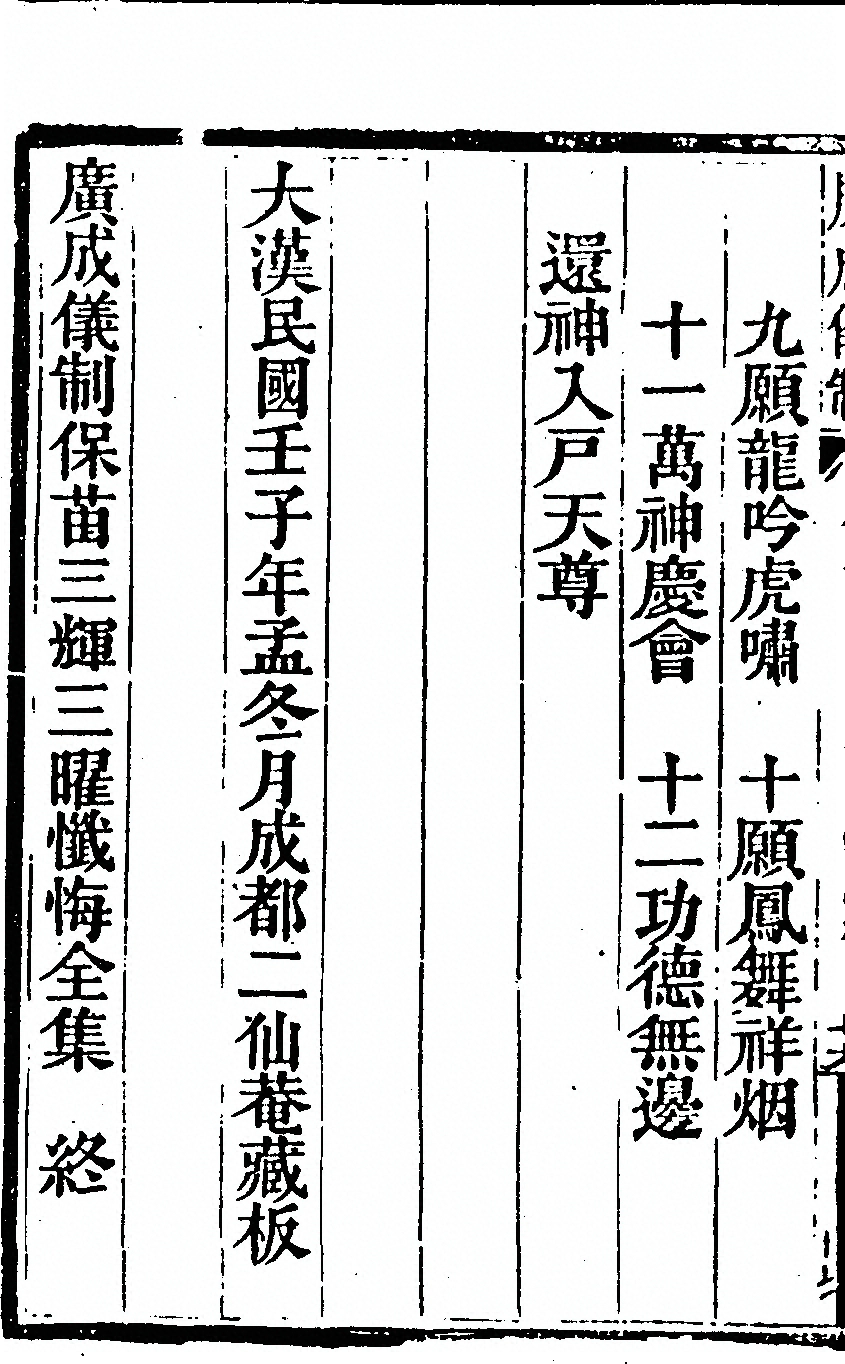 九願龍吟虎嘯　十願鳳舞祥烟
十一萬神慶會　十二功德無邊
還神入戶天尊
大漢民國壬子年孟冬月成都二仙菴藏板
廣成儀制保苗三輝三曜懺悔全集　終